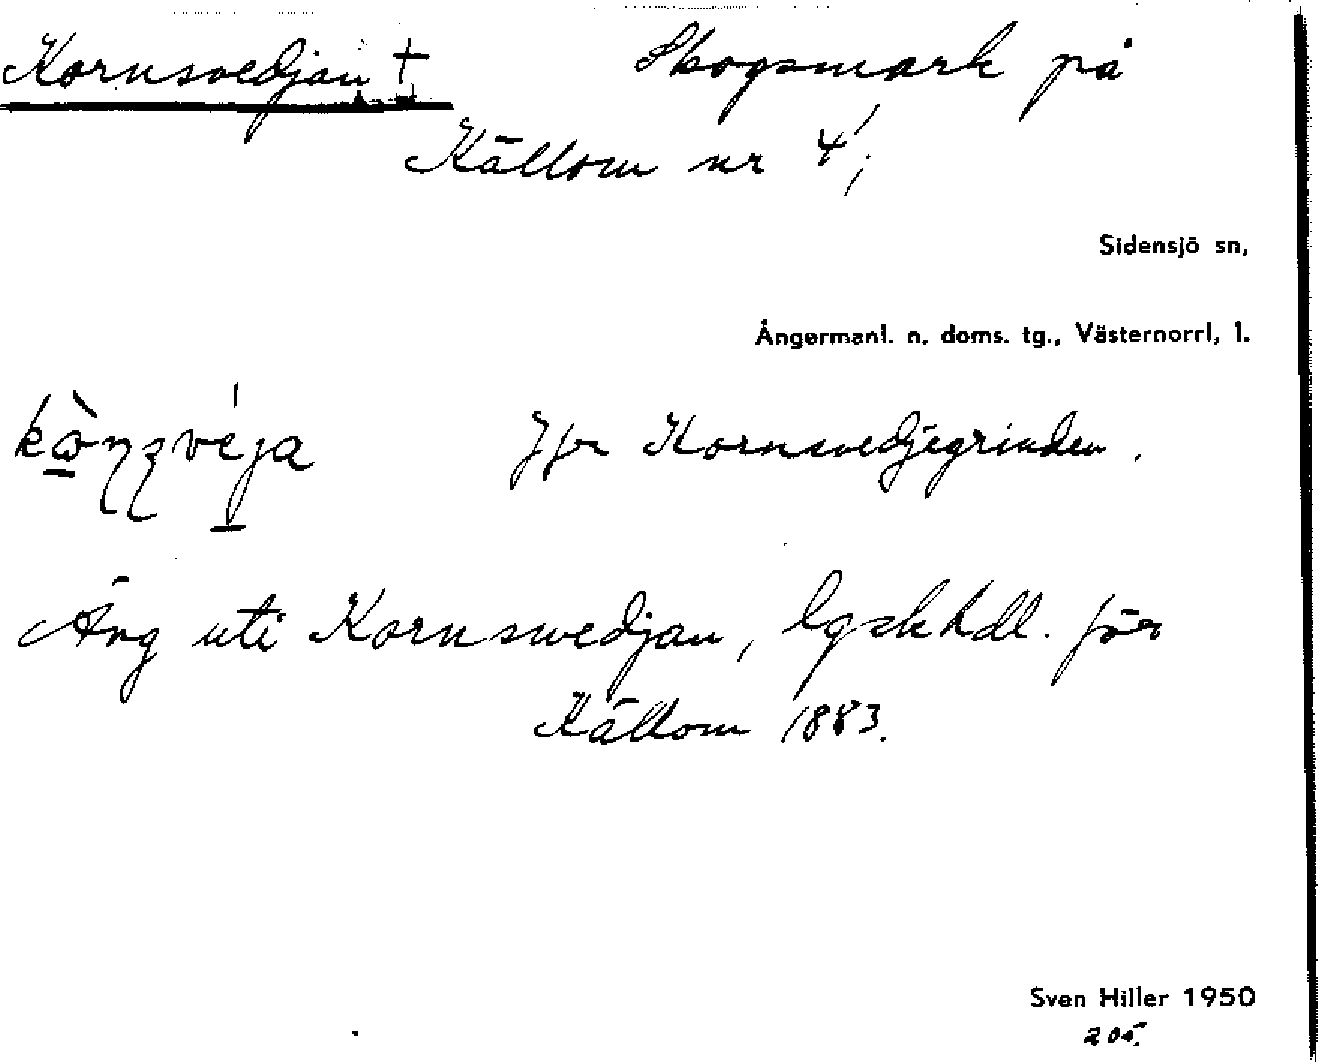 Kornsvedjan † Skogsmark på
Källom nr 4¹;
Sidensjö sn,
Ångermanl. n. doms. tg., Västernorrl, l.
Jfr Kornsvedjegrinden.
Äng uti Kornswedjan, lgskhdl. för
Källom 1883.
Sven Hiller 1950
205.